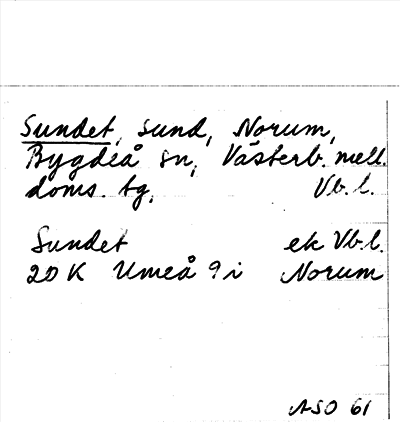 Sundet, sund, Norum,
Bygdeå sn, Västerb. mell.
doms. tg, Vb. l.
Sundet ek Vb. l.
20 K Umeå 9 i Norum
ASO 61